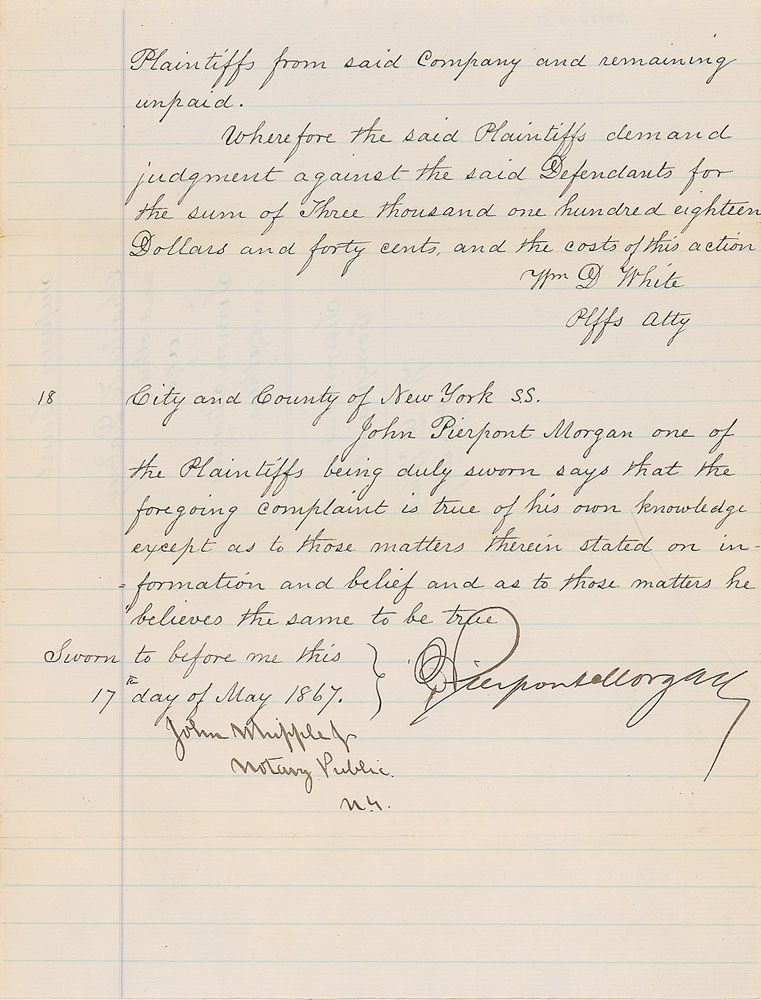 Plaintiffs from said Company and remaining
unpaid.
Wherefore the said Plaintiffs demand
judgment against the said Defendants for
the sum of Three thousand one hundred eighteen
Dollars and forty cents, and the costs of this action
Wm D White
Plffs Atty
18 City and County of New York S.S.
John Pierpont Morgan one of
the Plaintiffs being duly sworn says that the
foregoing complaint is true of his own knowledge
except as to those matters therein stated on in-
=formation and belief and as to those matters he
believes the same to be true
Sworn to before me this
17th day of May 1867.
J Pierpont Morgan
John Whipple Jr
Notary Public.
N.Y.